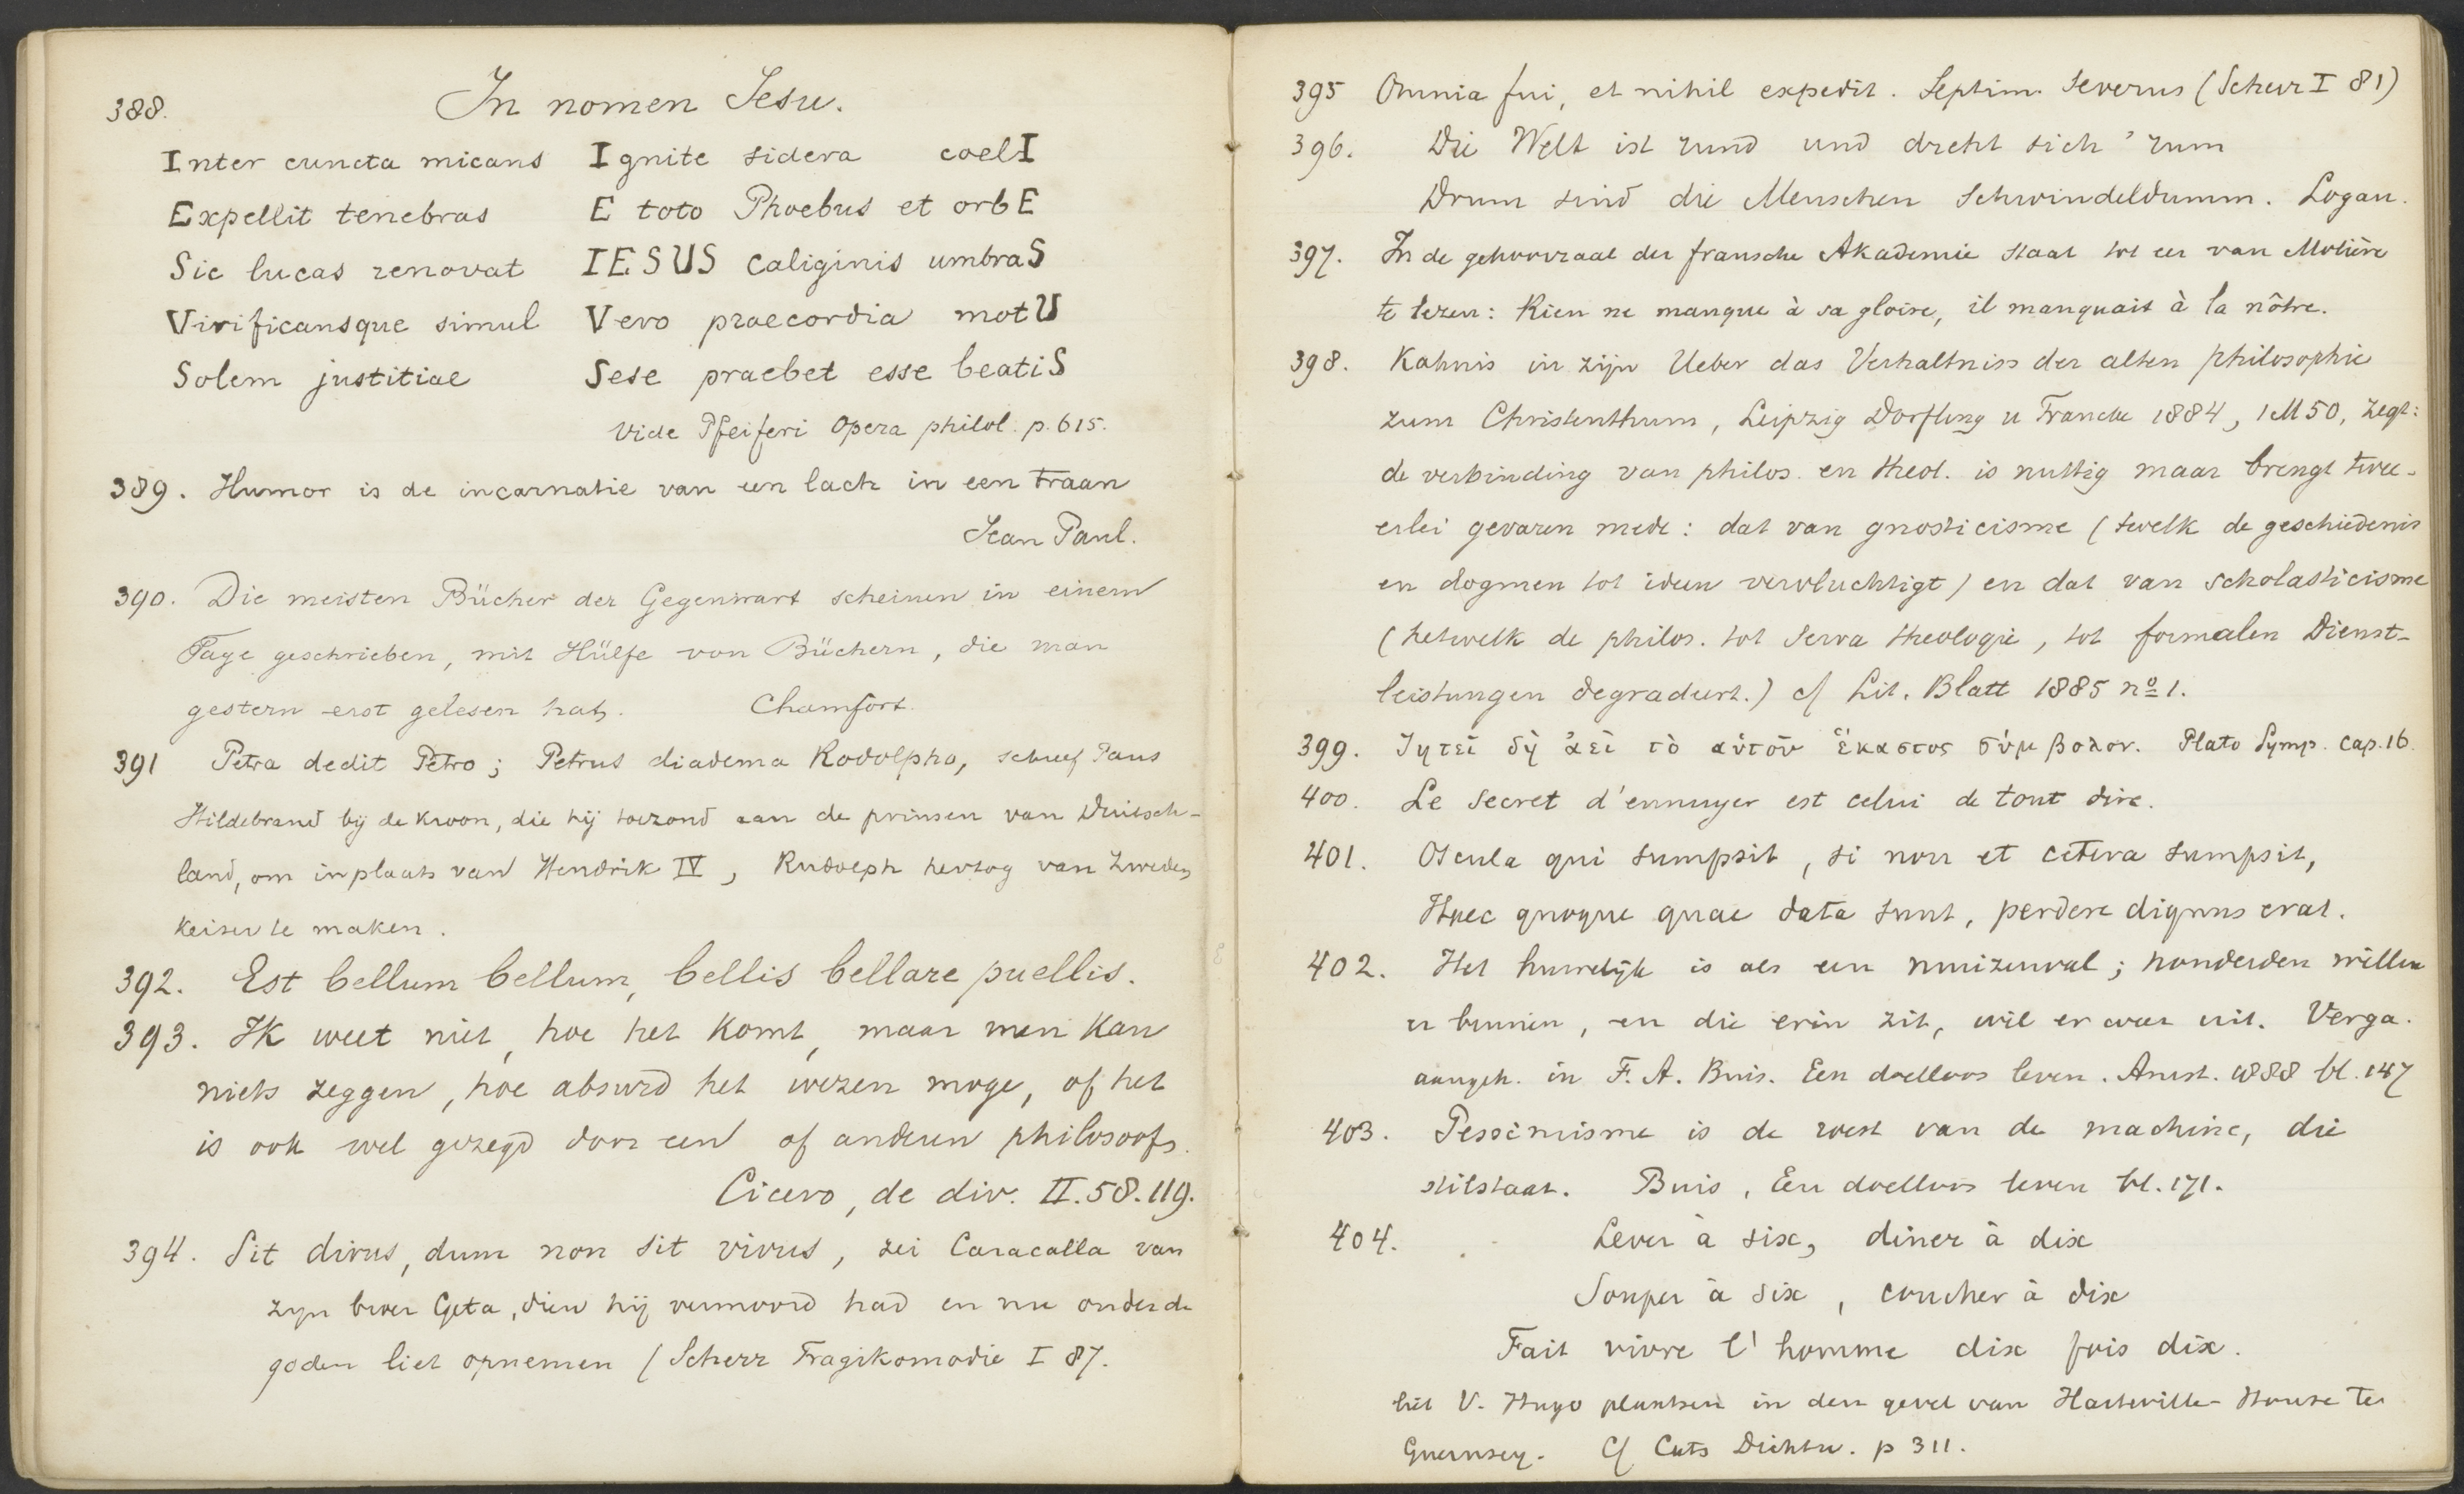 388. In nomen Jesu.
Inter cuncta micans Ignite sidera coelI
Expellit tenebras E toto Phoebus et orbE
Sic lucas renovat IESUS caliginis umbraS
Vivificansque simul Vero praecordia motU
Solem justitiae Sese praebet esse beatiS
Vide Pfeiferi Opera philol. p. 615.
389. Humor is de incarnatie van een lach in een traan
Jean Paul.
390. Die meisten Bücher der Gegenwart scheinen in einem
Tage geschrieben, mit Hülfe von Büchern, die man
gestern erst gelesen hat. Chamfort.
391 Petra dedit Petro; Petrus diadema Rodolpho, schreef Paus
Hildebrand bij de kroon, die hij toezond aan de prinsen van Duitsch-
land, om in plaats van Hendrik IV, Rudolph hertog van Zweden
keizer te maken.
392. Est bellum bellum, bellis bellare puellis.
393. Ik weet niet, hoe het komt, maar men kan
niets zeggen, hoe absurd het wezen moge, of het
is ook wel gezegd door een of anderen philosoofs.
Cicero, de div. II. 58. 119.
394. Sit divus, dum non sit vivus, zei Caracalla van
zijn broer Geta, dien hij vermoord had en nu onder de
goden liet opnemen (Scherr Tragikomodie I 87.
395 Omnia fui, et nihil expedit. Septim. Severus (Scherr I 81)
396. Die Welt ist rund und dreht sich 'rum
Drum sind die Menschen schwindeldumm. Logau.
397. In de gehoorzaal der fransche Akademie staat tot eer van Molière
te lezen: Rien ne manque à sa gloire, il manquait à la nôtre.
398. Kahnis in zijn Ueber das Verhaltniss der alten philosophie
zum Christenthum, Leipzig Dorfling u Francke 1884, 1 M 50, zegt:
de verbinding van philos. en theol. is nuttig maar brengt twee-
erlei gevaren mede: dat van gnosticisme (twelk de geschiedenis
en dogmen tot ideen vervluchtigt) en dat van scholasticisme
(hetwelk de philos. tot serva theologie, tot formalen Dienst-
leistungen degradeert.) cf Lit. Blatt 1885 no 1.
399. Ζητεῖ δὴ ἀεὶ τὸ αὑτοῦ ἕκαστος σύμβολον. Plato Symp. cap. 16.
400. Le secret d'ennuyer est celui de tout dire.
401. Oscula qui sumpsit, si non et cetera sumpsit,
Haec quoque quae data sunt, perdere dignus erat.
402. Het huwelijk is als een muizenval; honderden willen
er binnen, en die erin zit, wil er weer uit. Verga.
aangeh. in F. A. Buis. Een doelloos leven. Amst. 1888 bl. 147
403. Pessimisme is de roest van de machine, die
stilstaat. Buis, Een doelloos leven bl. 171.
404. Lever à six, diner à dix
Souper à six, coucher à dix
Fait vivre l'homme dix fois dix.
liet V. Hugo plaatsen in den gevel van Hauteville-House te
Guernsey. Cf Cats Dichtw. p 311.